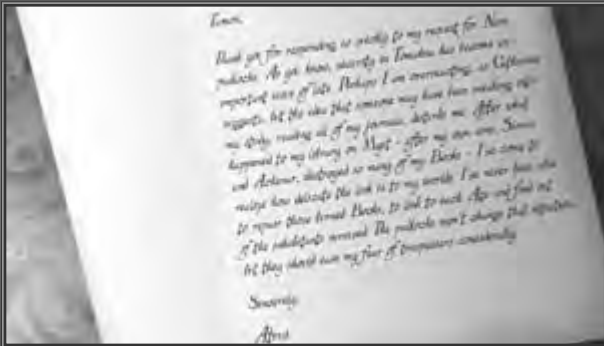 Thank you for responding so quickly to my request for Nara
padlocks. As you know, security in Tomahna has become an
important issue of late. Perhaps I am overreacting, as Catherine
suggests, but the idea that someone may have been sneaking into
my study, reading all of my journals, disturbs me. After what
happened to my library on Myst - after my own sons, Sirrus
and Achenar, destroyed so many of my Books - I've come to
realize how delicate the link is to my worlds. I've never been able
to repair those burned Books, to link to each Age and find out
if the inhabitants survived. The padlocks won't change that situation,
but they should ease my fear of trespassers considerably.
Sincerely,
Atrus